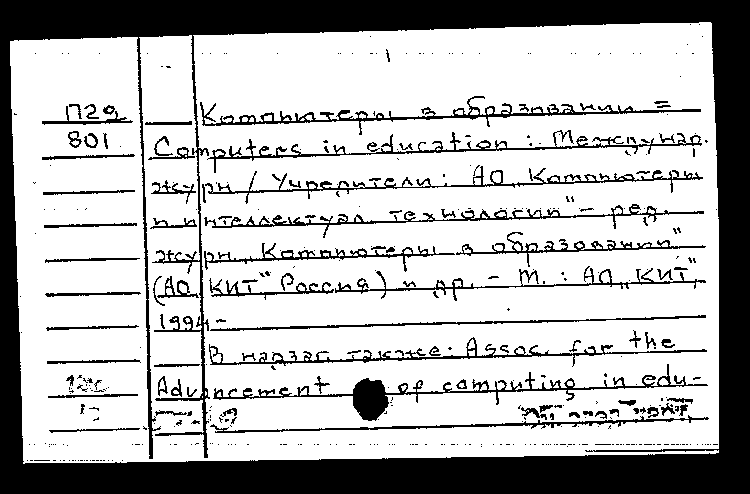 П29 Компьютеры в образовании =
801 Computers in education : Междунар.
журн / Учредители: АО „Компьютеры
и интеллектуал. технологии" – ред.
журн „Компьютеры в образовании"
(АО „КИТ", Россия) и др. – М. : АО „КИТ",
1994 –
В надзаг. также: Assoc. for the
Advancement of computing in edu-